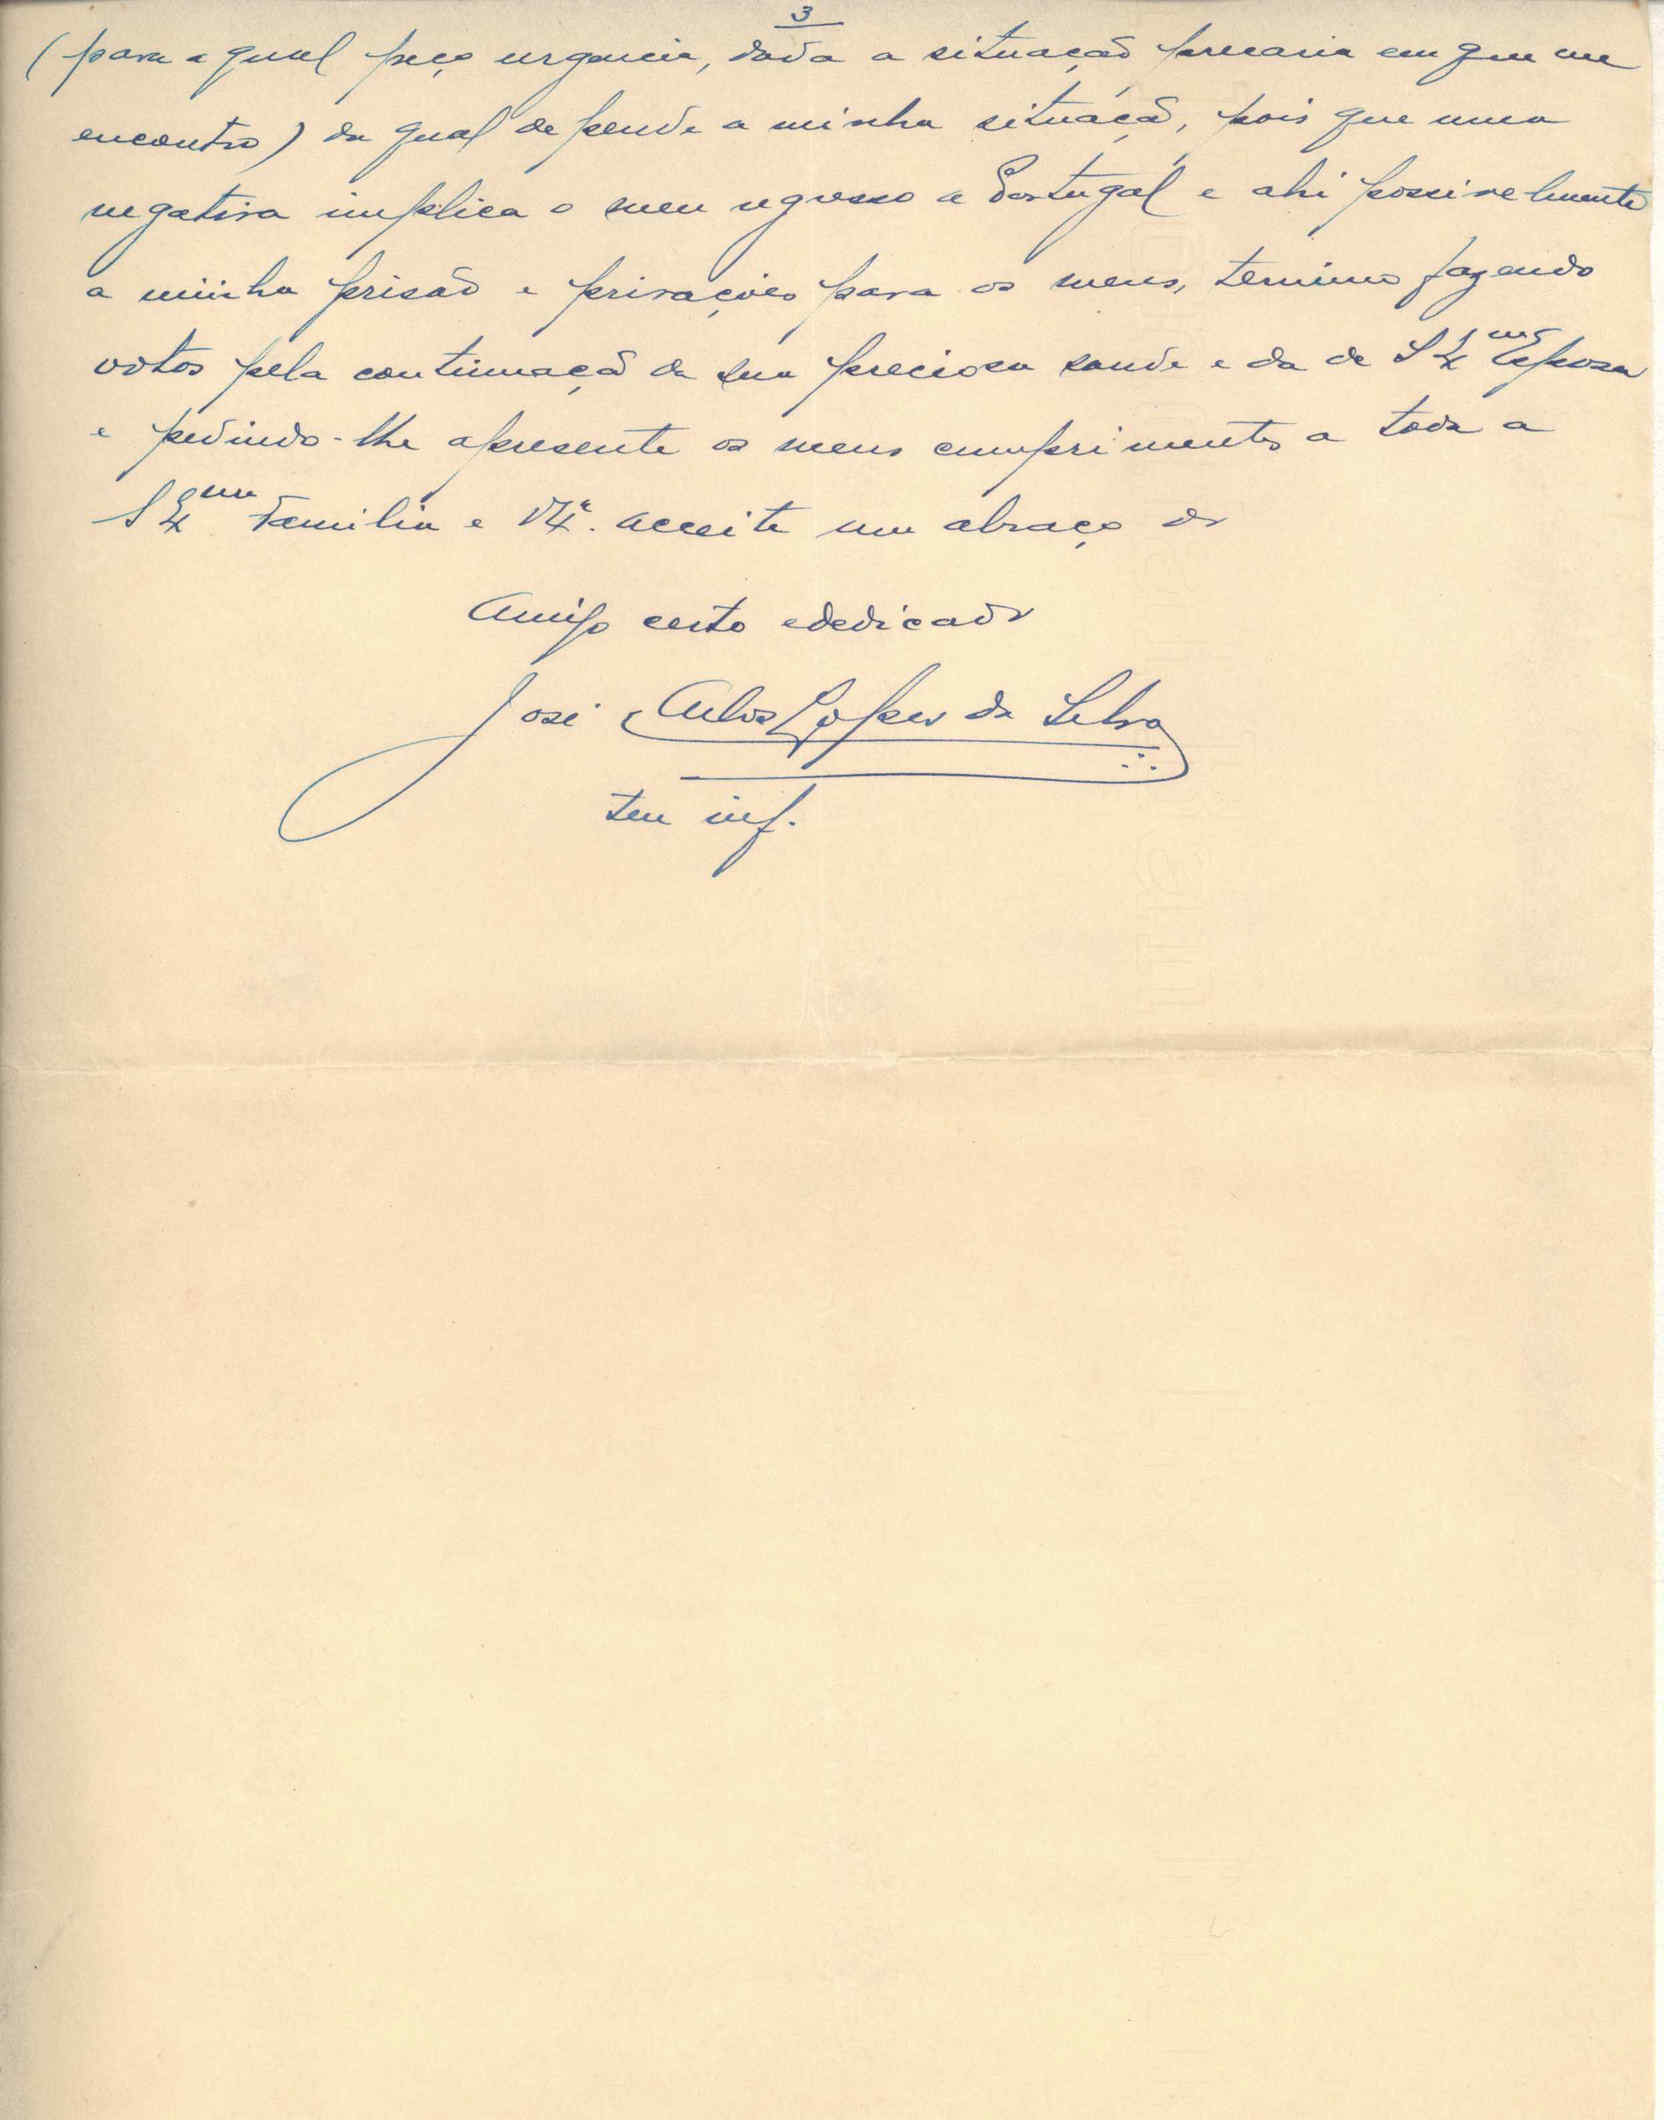 3
(para a qual peço urgencia, dada a situação precaria em que me
encontro) da qual depende a minha situação, pois que uma
negativa implica o meu regresso a Portugal e ahi possivelmente
a minha prisão e privações para os meus, termino fazendo
votos pela continuação da sua preciosa saude e da de S. Ex.ma Esposa
e pedindo-lhe apresente os meus cumprimentos a toda a
S. Ex.ma Familia e V. Ex.ª acceite um abraço do
Amigo certo e dedicado
José Lopes da Silva
ten inf.